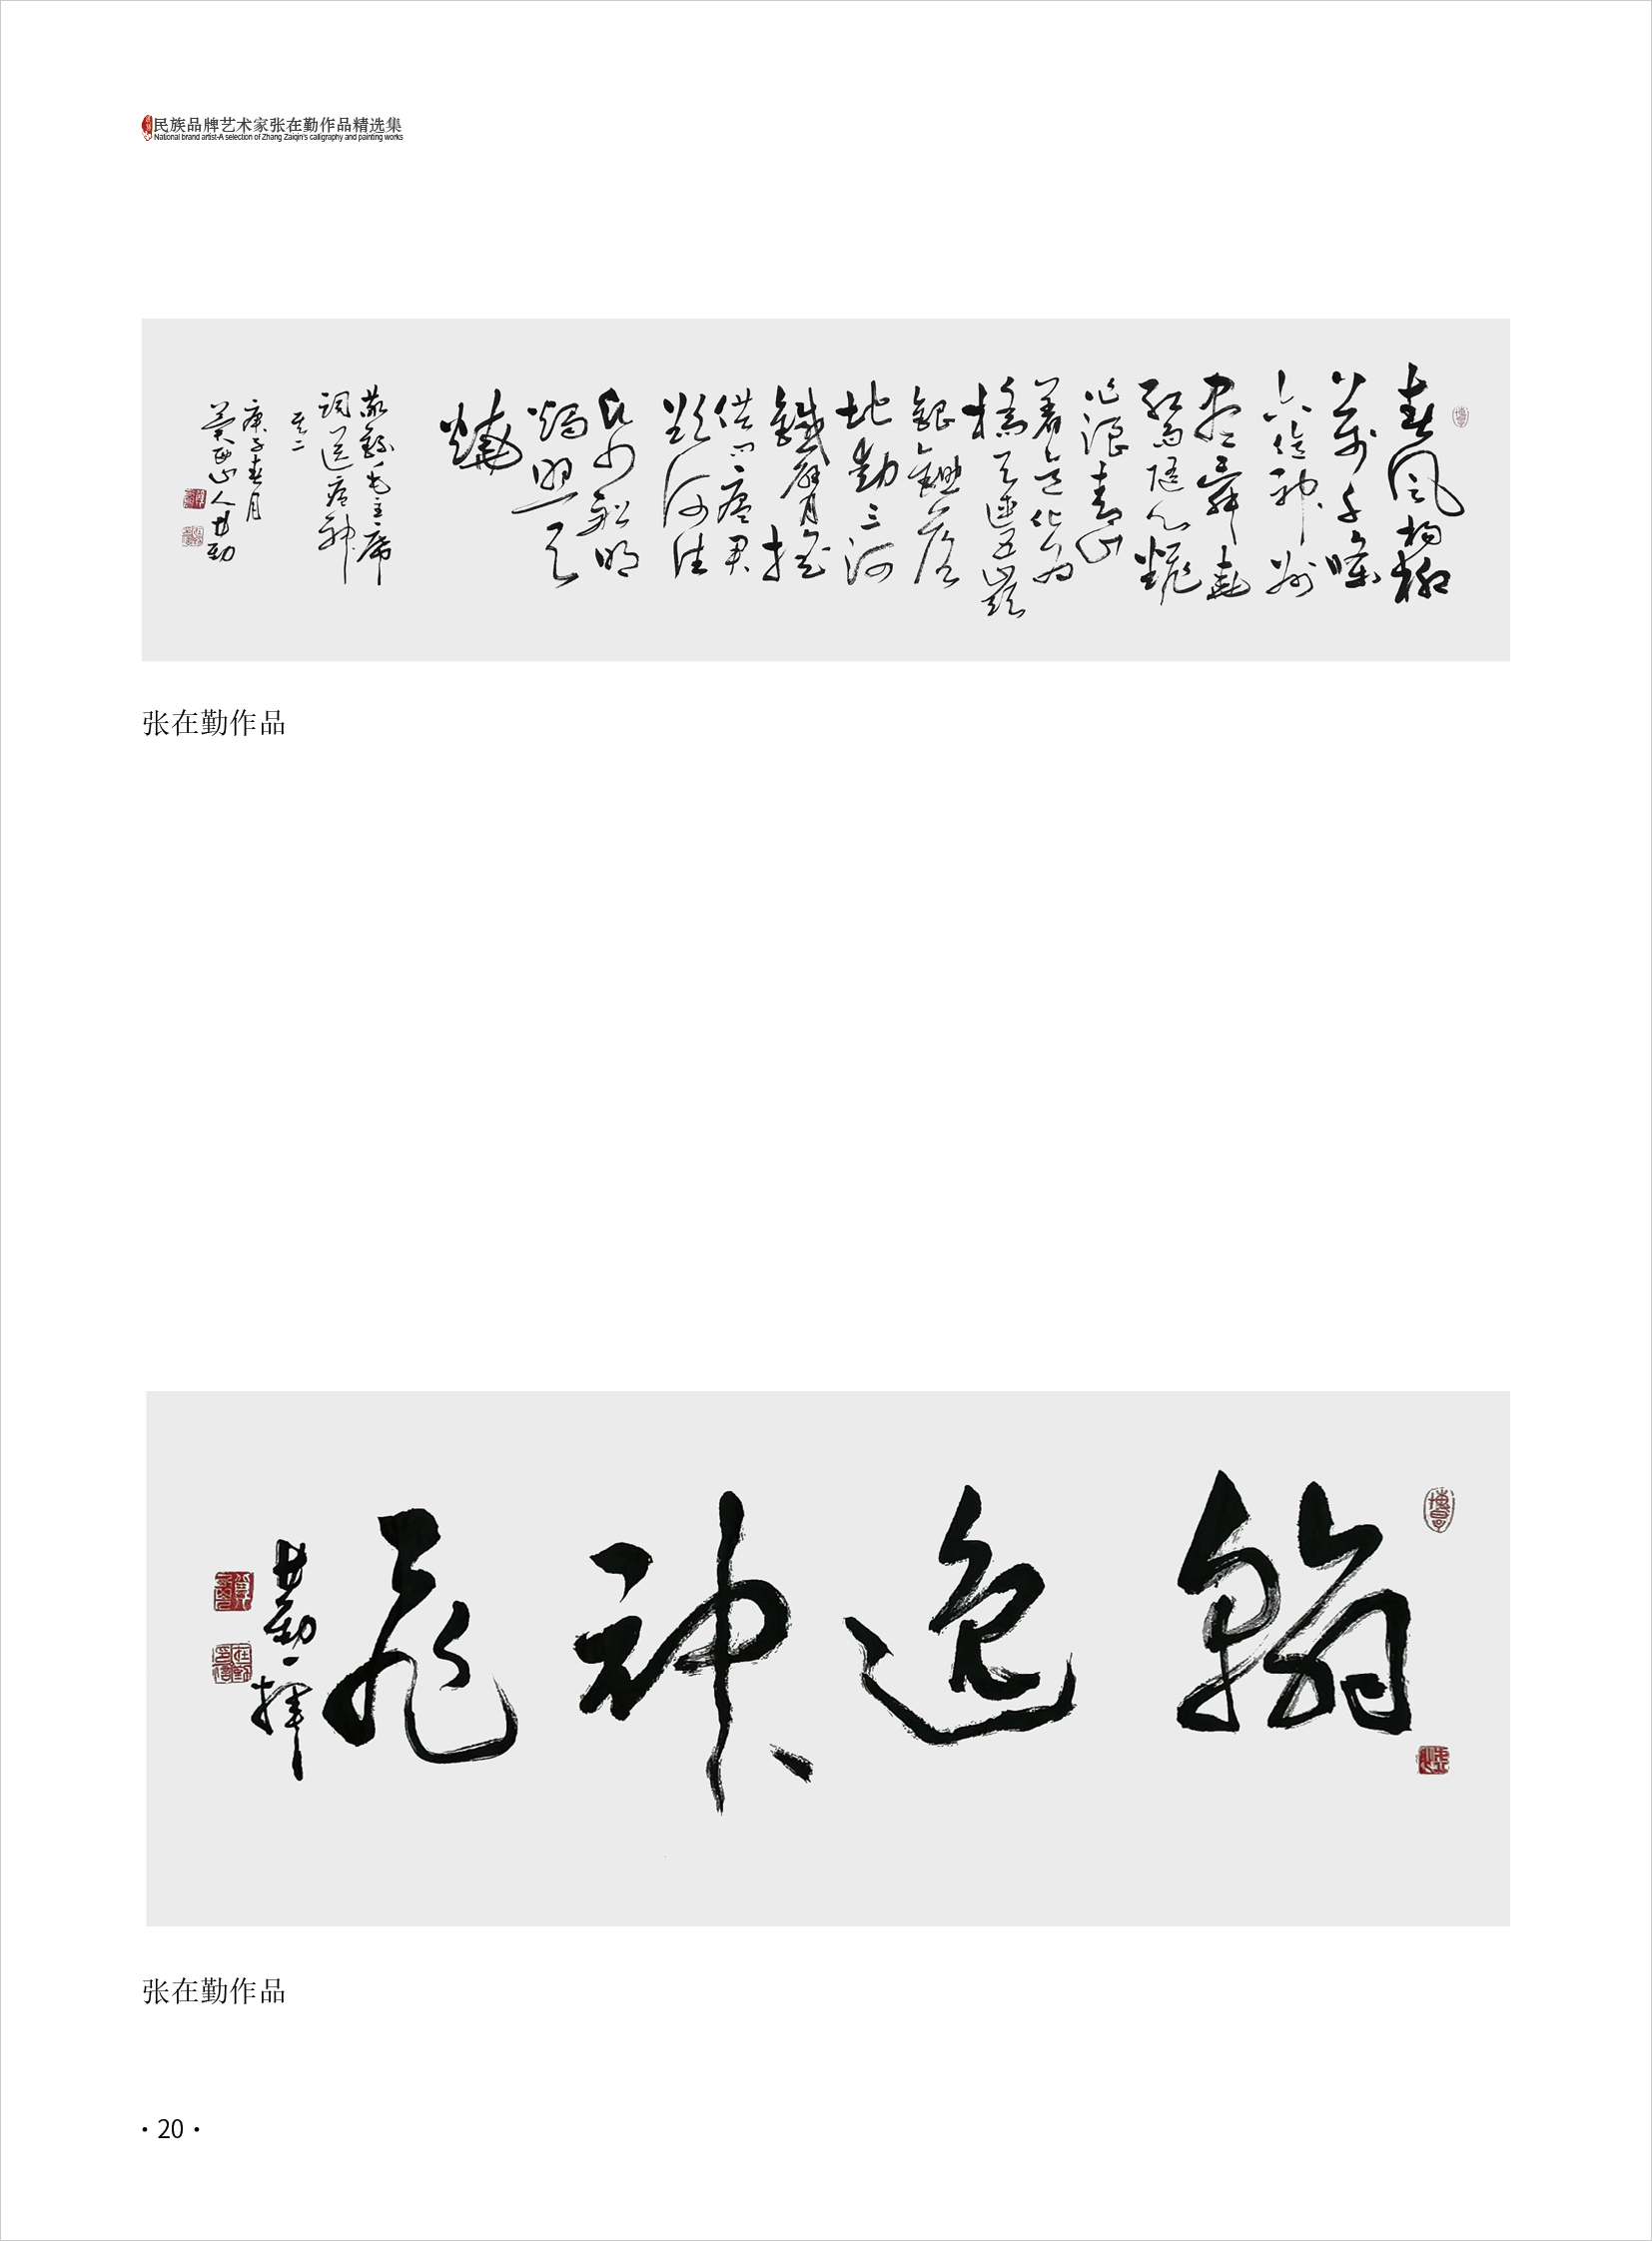 民族品牌艺术家张在勤作品精选集
National brand artist-A selection of Zhang Zaiqin's calligraphy and painting works
春風楊柳
萬千條
六億神州
盡舜堯
紅雨隨心飜
作浪青山
着意化為
橋天連五嶺
銀鋤落
地動三河
鐵臂搖
借问瘟君
欲何往
紙船明
燭照天
燒
敬錄毛主席
詞送瘟神
其二
庚子春月
山人在勤
张在勤作品
翰逸神飛
在勤揮
张在勤作品
· 20 ·